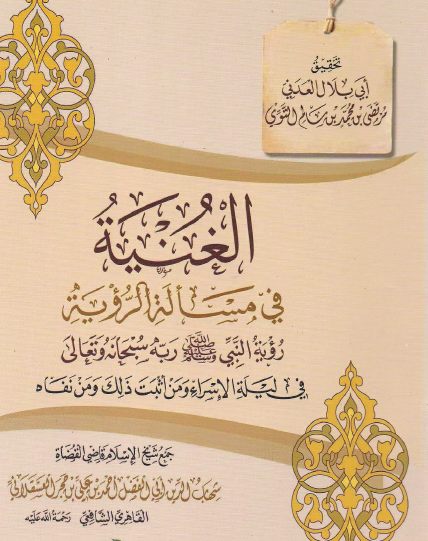 تحقيق
أبي بلال العدني
مرتضى بن محمد بن سالم التوي
الغُنيَةُ
في مسألة الرؤية
رؤية النبي ﷺ ربه سبحانه وتعالى
في ليلة الإسراء ومن أثبت ذلك ومن نفاه
جمع شيخ الإسلام قاضي القضاة
شهاب الدين أبي الفضل أحمد بن علي بن حجر العسقلاني
القاهري الشافعي رحمة الله عليه